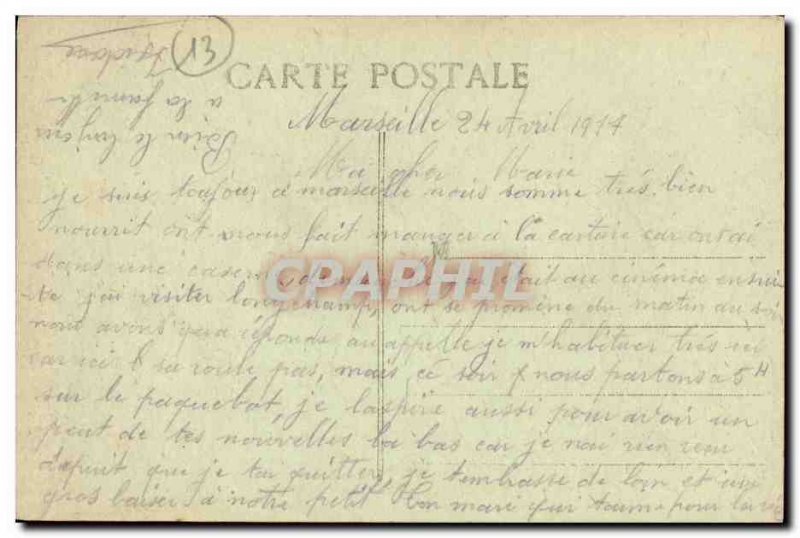 13
CARTE POSTALE
Marseille 24 Avril 1917
Ma cher Marie
je suis toujour a marseille nous somme très bien
nourrit ont nous fait manger à la cartoire car on vai
dans une caserne était au cinéma ensui
te j'ai visiter longchamp, ont se promène du matin au soi
nous avons qua réponde au appelle je m'habituer très ici
car ici sa roule pas, mais ce soir nous partons a 5 H
sur le paquebot, je laspire aussi pour avoir un
peut de tes nouvelles la bas car je nai rien
depuit que je tai quitter, je tembrasse de loin et
gros baiser a notre petit ton mari qui pour la vie
Bien le
a la famille
Isidore
CPAPHIL